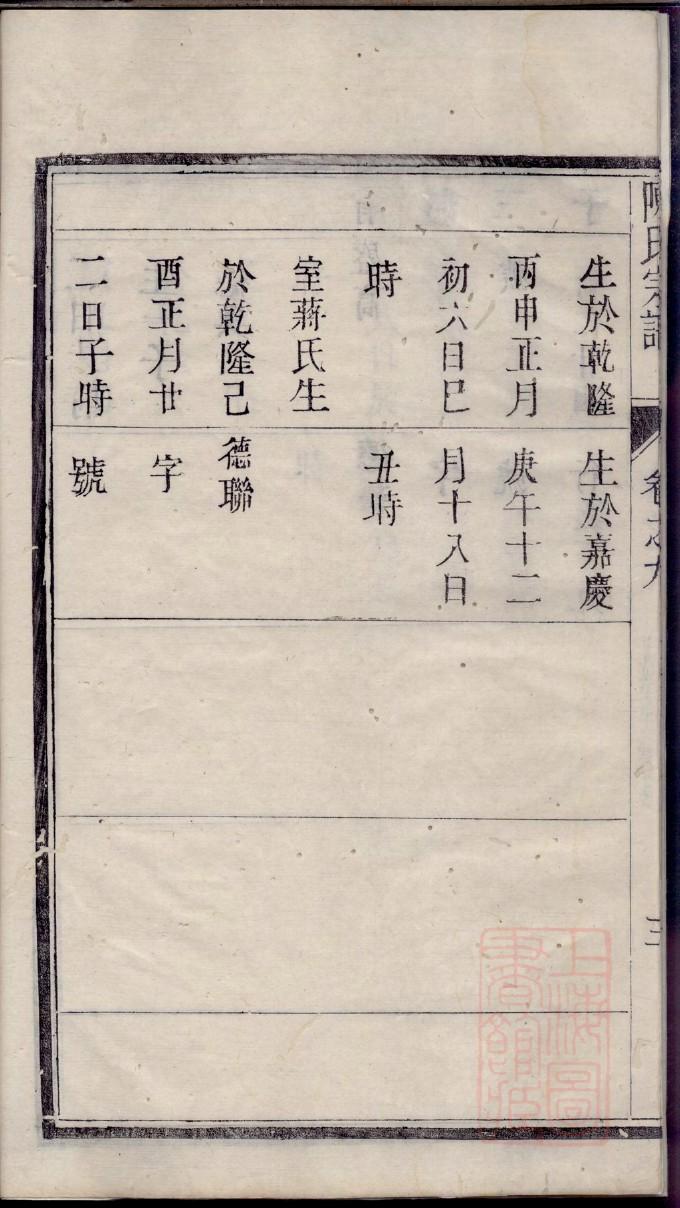 陳氏宗譜
卷之九
三
生於乾隆
丙申正月
初六日巳
時
室蔣氏生
於乾隆己
酉正月廿
二日子時
生於嘉慶
庚午十二
月十八日
丑時
德聯
字
號
上海圖
書館藏